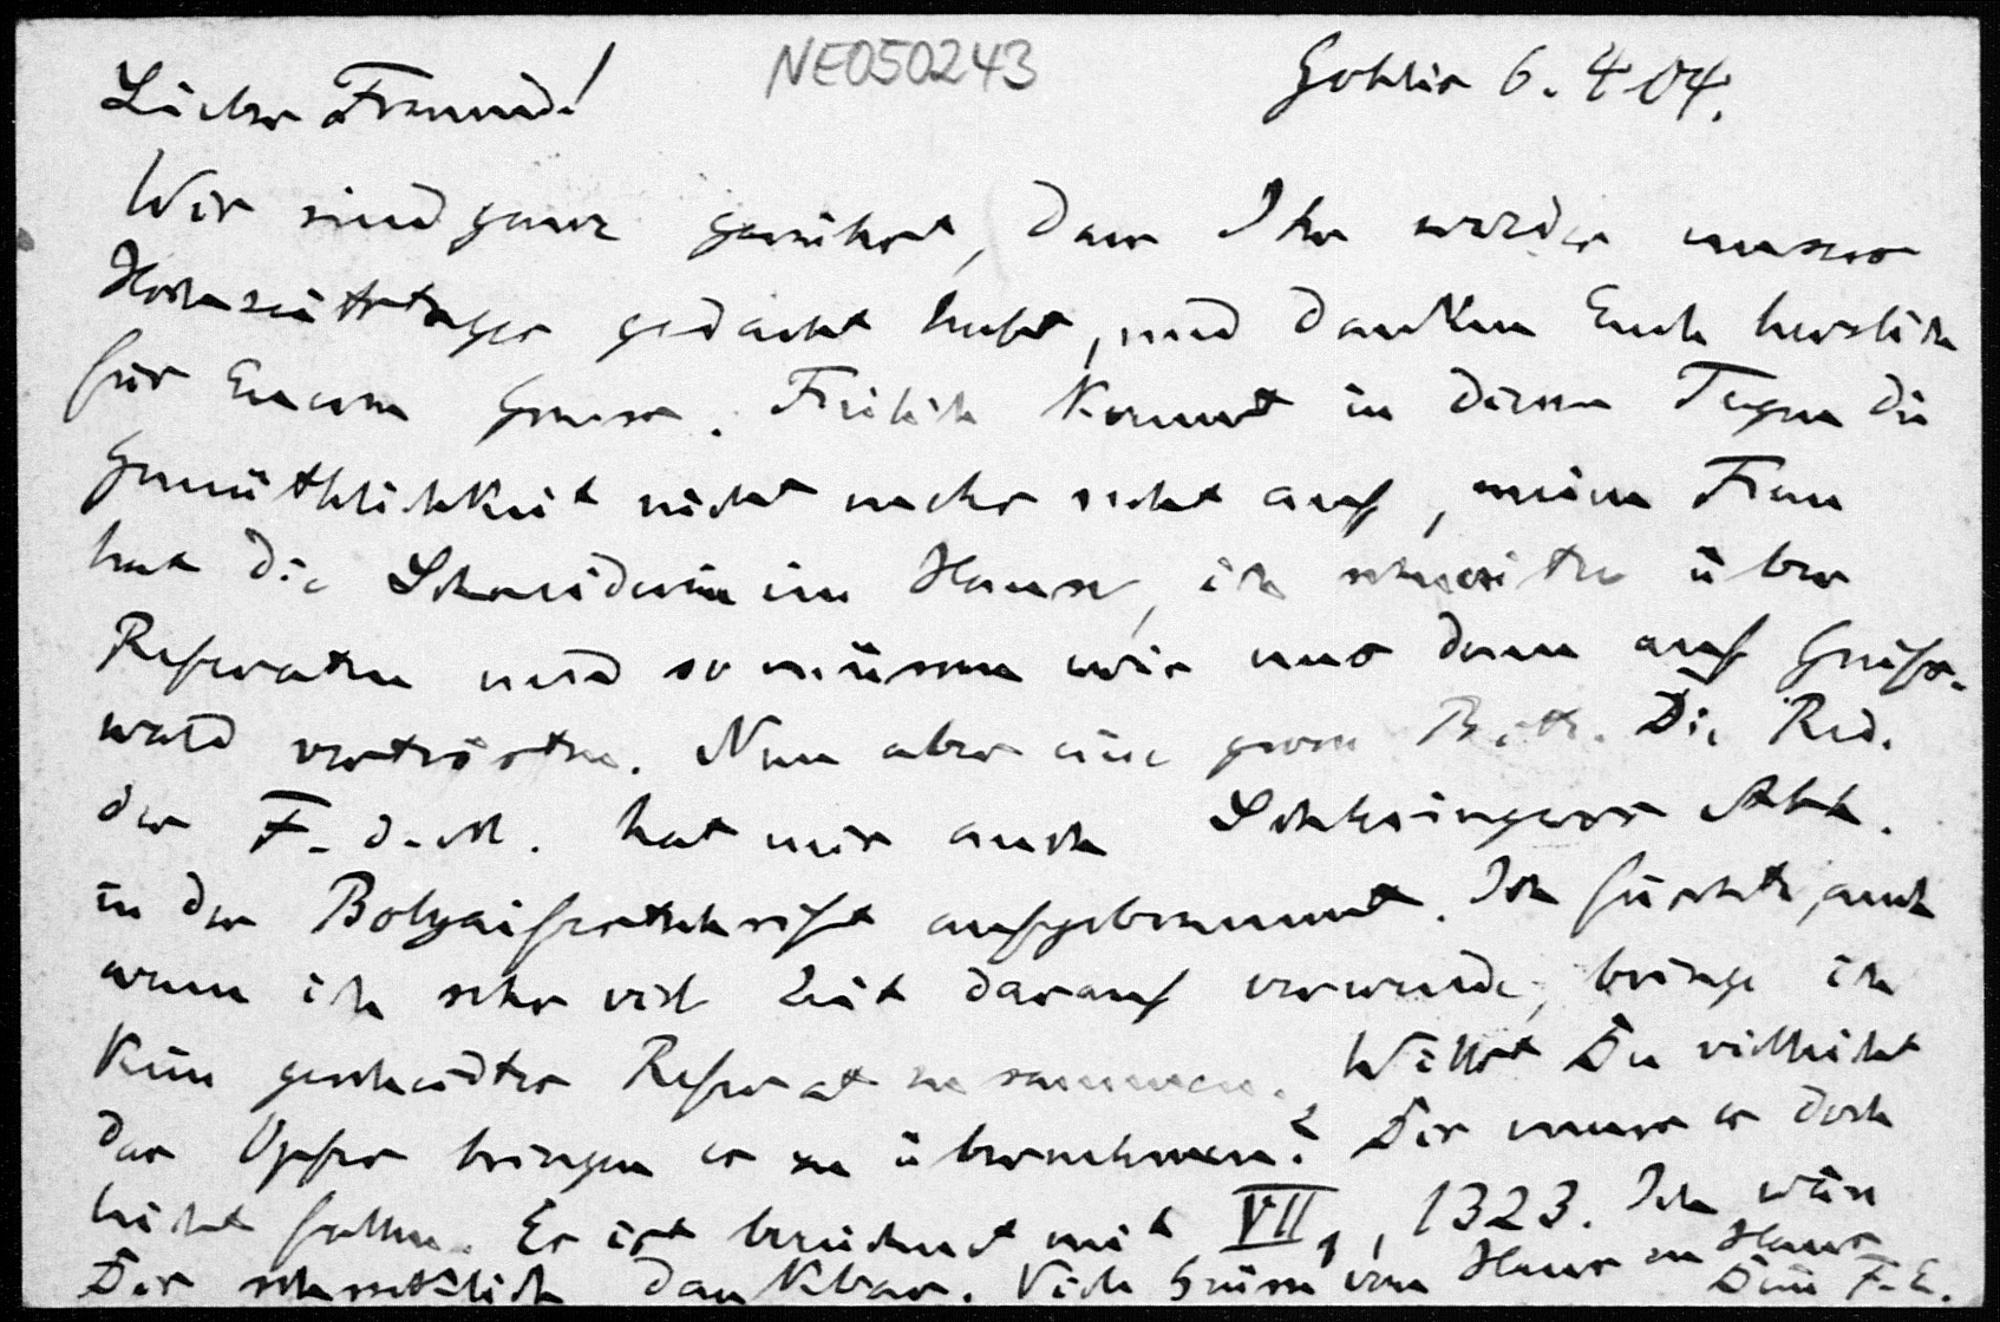 NE050243
Gohlis 6. 4 04.
Lieber Freund!
Wir sind ganz gerührt, dass Ihr wieder unseres
Hochzeitstages gedacht habt, und danken Euch herzlich
für Euern Gruss. Freilich kommt in diesen Tagen die
Gemüthlichkeit nicht mehr recht auf, meine Frau
hat die Schneiderin im Hause, ich schwitze über
Referaten und so müssen wir uns denn auf Greifs-
wald vertrösten. Nun aber eine grosse Bitte. Die Red.
der F. d. M. hat mir auch Schlesingers Abh.
in der Bolyaifestschrift aufgebrummt. Ich fürchte, auch
wenn ich sehr viel Zeit darauf verwende, bringe ich
kein gescheidtes Referat zusammen. Willst Du vielleicht
das Opfer bringen es zu übernehmen? Dir muss es doch
leicht fallen. Es ist bezeichnet mit VII, 1323. Ich wäre
Dir schrecklich dankbar. Viele Grüsse von Haus zu Haus
Dein F. E.